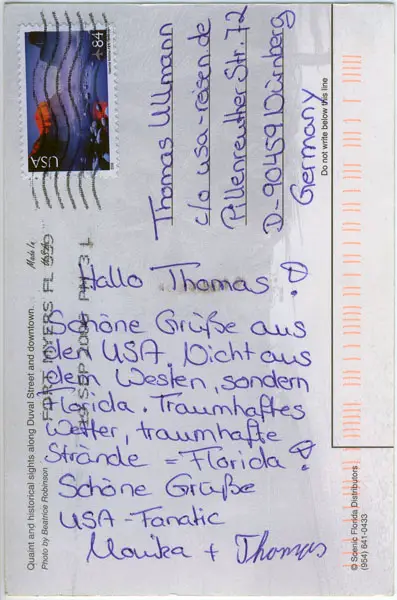 84
USA
Thomas Ullmann
c/o usa-reisen.de
Pillenreuther Str. 72
D-90459 Nürnberg
Germany
Do not write below this line
Quaint and historical sights along Duval Street and downtown.
Photo by Beatrice Robinson
Made In
FORT MYERS FL 339
SEP 2006 PM 3 L
Hallo Thomas!
Schöne Grüße aus
den USA. Nicht aus
dem Westen, sondern
Florida. Traumhaftes
Wetter, traumhafte
Strände = Florida!
Schöne Grüße
USA-Fanatic
Monika + Thomas
© Scenic Florida Distributors
(954) 641-0433